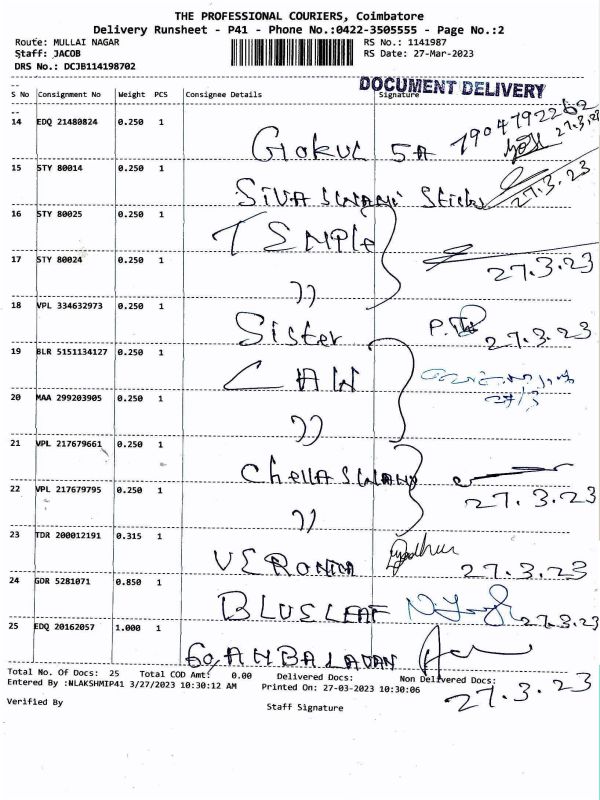 THE PROFESSIONAL COURIERS, Coimbatore
Delivery Runsheet - P41 - Phone No.:0422-3505555 - Page No.:2
Route: MULLAI NAGAR RS No.: 1141987
Staff: JACOB RS Date: 27-Mar-2023
DRS No.: DCJB114198702
DOCUMENT DELIVERY
S No Consignment No Weight PCS Consignee Details Signature
14 EDQ 21480824 0.250 1 Gokul 5A 7904792262 27.3.23
15 STY 80014 0.250 1 SIVA SWAMI 27.3.23
16 STY 80025 0.250 1 TEMPle
17 STY 80024 0.250 1 ” 27.3.23
18 VPL 334632973 0.250 1 Sister 27.3.23
19 BLR 5151134127 0.250 1 LAW
20 MAA 299203905 0.250 1 ” 27/3
21 VPL 217679661 0.250 1 ChellASWAMY
22 VPL 217679795 0.250 1 ” 27.3.23
23 TDR 200012191 0.315 1 VERONICA 27.3.23
24 GDR 5281071 0.850 1 BLUELEAF 27.3.23
25 EDQ 20162057 1.000 1 AMBALAVAN
Total No. Of Docs: 25 Total COD Amt: 0.00 Delivered Docs: Non Delivered Docs:
27.3.23
Entered By :NLAKSHMIP41 3/27/2023 10:30:12 AM Printed On: 27-03-2023 10:30:06
Verified By Staff Signature